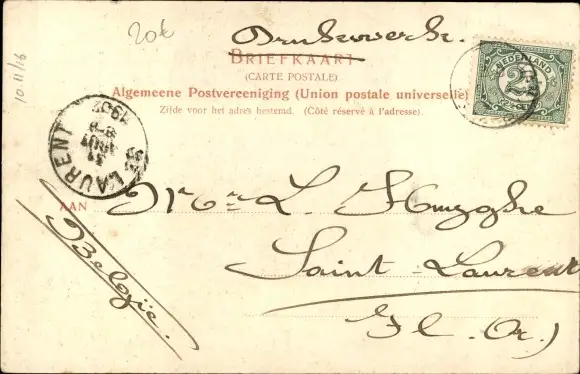 20k
10.11/16
Drukwerk.
BRIEFKAART
(CARTE POSTALE)
Algemeene Postvereeniging (Union postale universelle)
Zijde voor het adres bestemd. (Côté réservé à l'adresse).
NEDERLAND
2½
ST LAURENT
8-9
31
AOUT
1902
AAN
Mr L. Huyghe
Saint-Laurent
Fl. Or.)
België.